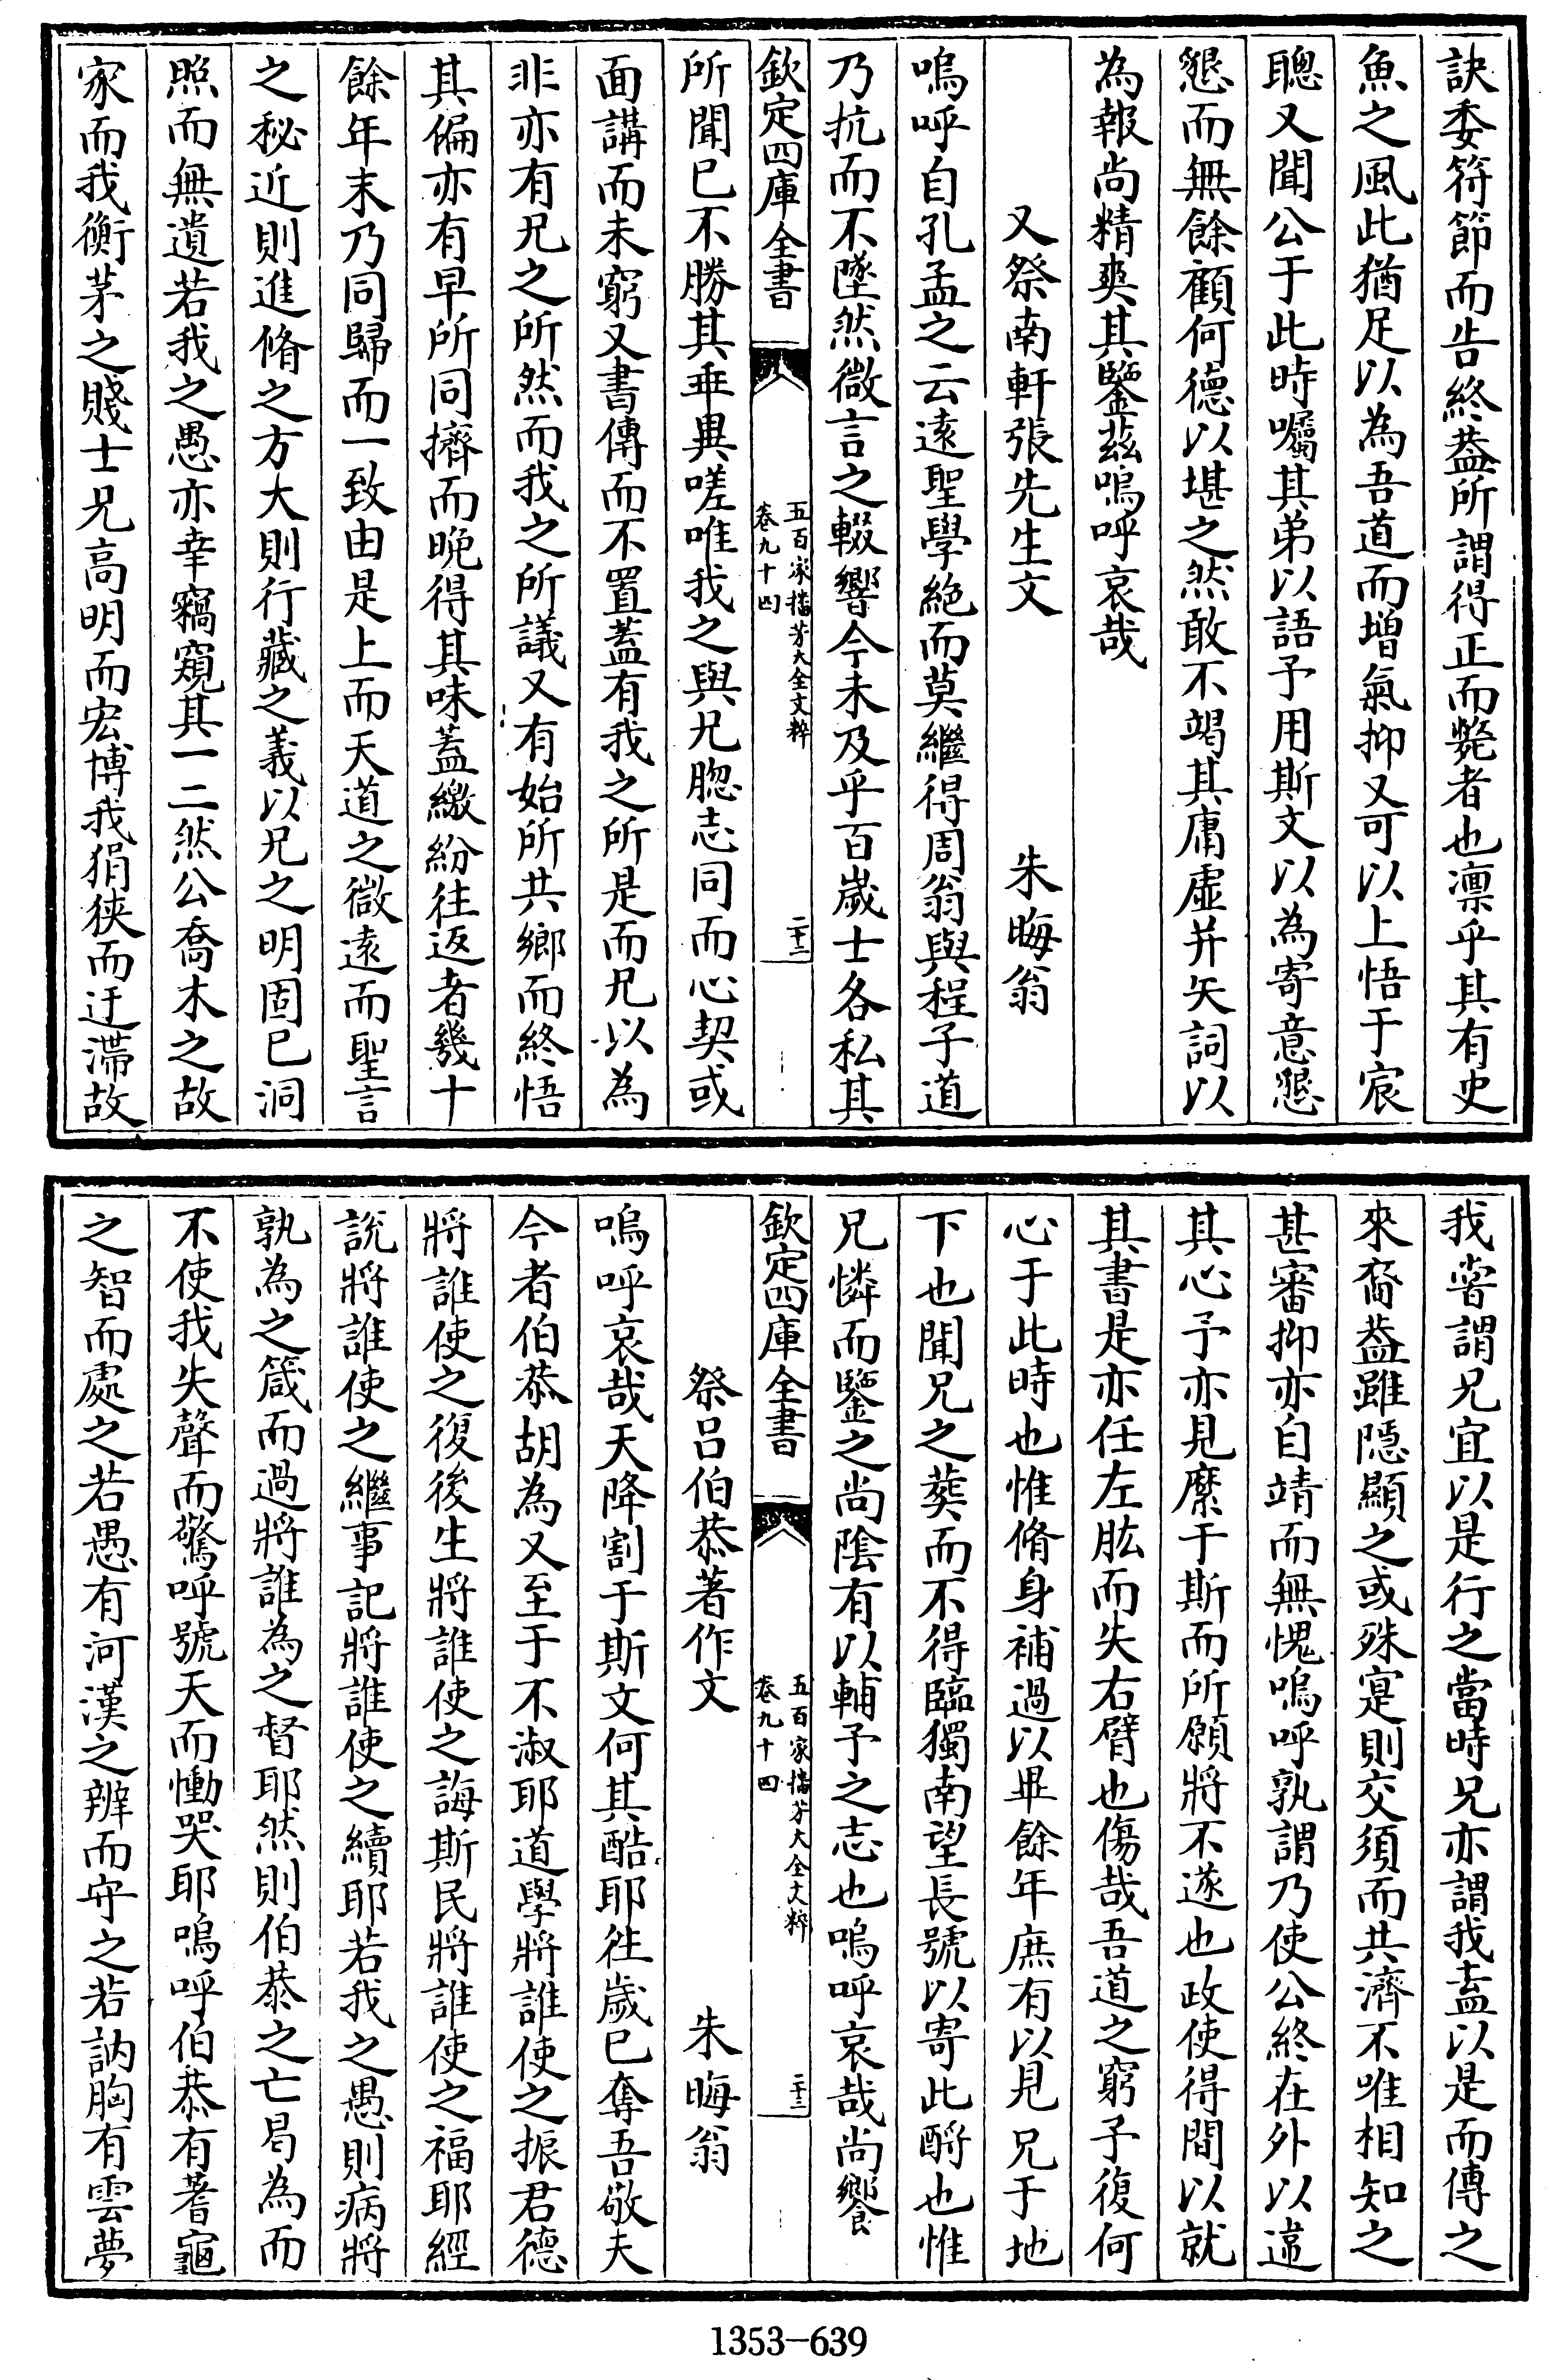 訣委符節而告終葢所謂得正而斃者也凛乎其有史
魚之風此猶足以為吾道而增氣抑又可以上悟于宸
聰又聞公于此時囑其弟以語予用斯文以為寄意懇
懇而無餘顧何德以堪之然敢不竭其庸虛并矢詞以
為報尚精爽其鑒茲嗚呼哀哉
又祭南軒張先生文 朱晦翁
嗚呼自孔孟之云逺聖學絶而莫繼得周翁與程子道
乃抗而不墜然微言之輟響今未及乎百嵗士各私其
欽定四庫全書 五百家播芳大全文粹 卷九十四 二十二
所聞已不勝其乖異嗟唯我之與兄脗志同而心契或
面講而未窮又書傳而不置蓋有我之所是而兄以為
非亦有兄之所然而我之所議又有始所共鄉而終悟
其偏亦有早所同擠而晚得其味蓋繳紛往返者幾十
餘年末乃同歸而一致由是上而天道之微逺而聖言
之秘近則進脩之方大則行藏之義以兄之明固已洞
照而無遺若我之愚亦幸竊窺其一二然公喬木之故
家而我衡茅之賤士兄髙明而宏博我狷狹而迂滯故
我甞謂兄宜以是行之當時兄亦謂我盍以是而傳之
來裔葢雖隱顯之或殊寔則交須而共濟不唯相知之
甚審抑亦自靖而無愧嗚呼孰謂乃使公終在外以違
其心予亦見縻于斯而所願將不遂也政使得間以就
其書是亦任左肱而失右臂也傷哉吾道之窮予復何
心于此時也惟脩身補過以畢餘年庶有以見兄于地
下也聞兄之葬而不得臨獨南望長號以寄此酹也惟
兄憐而鑒之尚隂有以輔予之志也嗚呼哀哉尚饗
欽定四庫全書 五百家播芳大全文粹 卷九十四 二十三
祭吕伯恭著作文 朱晦翁
嗚呼哀哉天降割于斯文何其酷耶徃嵗已奪吾敬夫
今者伯恭胡為又至于不淑耶道學將誰使之振君德
將誰使之復後生將誰使之誨斯民將誰使之福耶經
說將誰使之繼事記將誰使之續耶若我之愚則病將
孰為之箴而過將誰為之督耶然則伯恭之亡曷為而
不使我失聲而驚呼號天而慟哭耶嗚呼伯恭有蓍龜
之智而處之若愚有河漢之辨而守之若訥胸有雲夢
1353-639